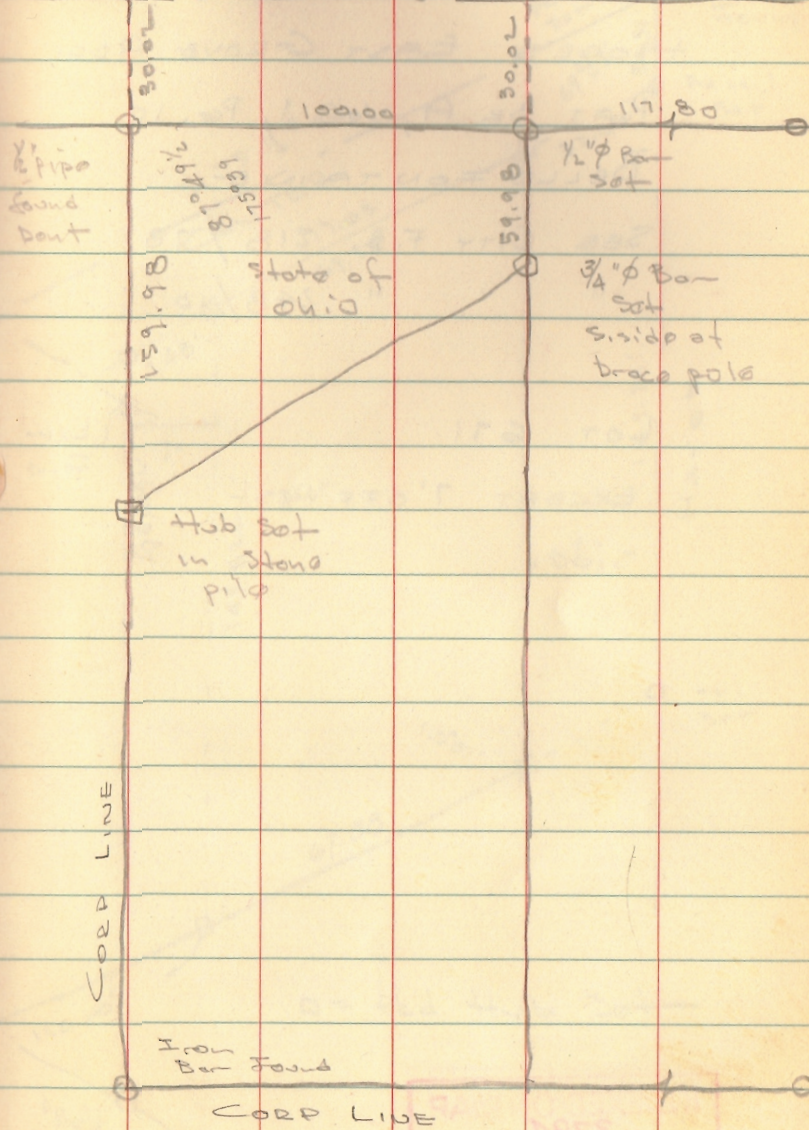 30.02
30.02
100.00
117.80
pipe
found
bent
87° 49½
175° 39
59.98
1/2"Ø Bar
set
159.98
State of
Ohio
3/4"Ø Bar
set
S. side of
brace pole
Hub set
in stone
pile
CORP LINE
Iron
Bar Found
CORP LINE